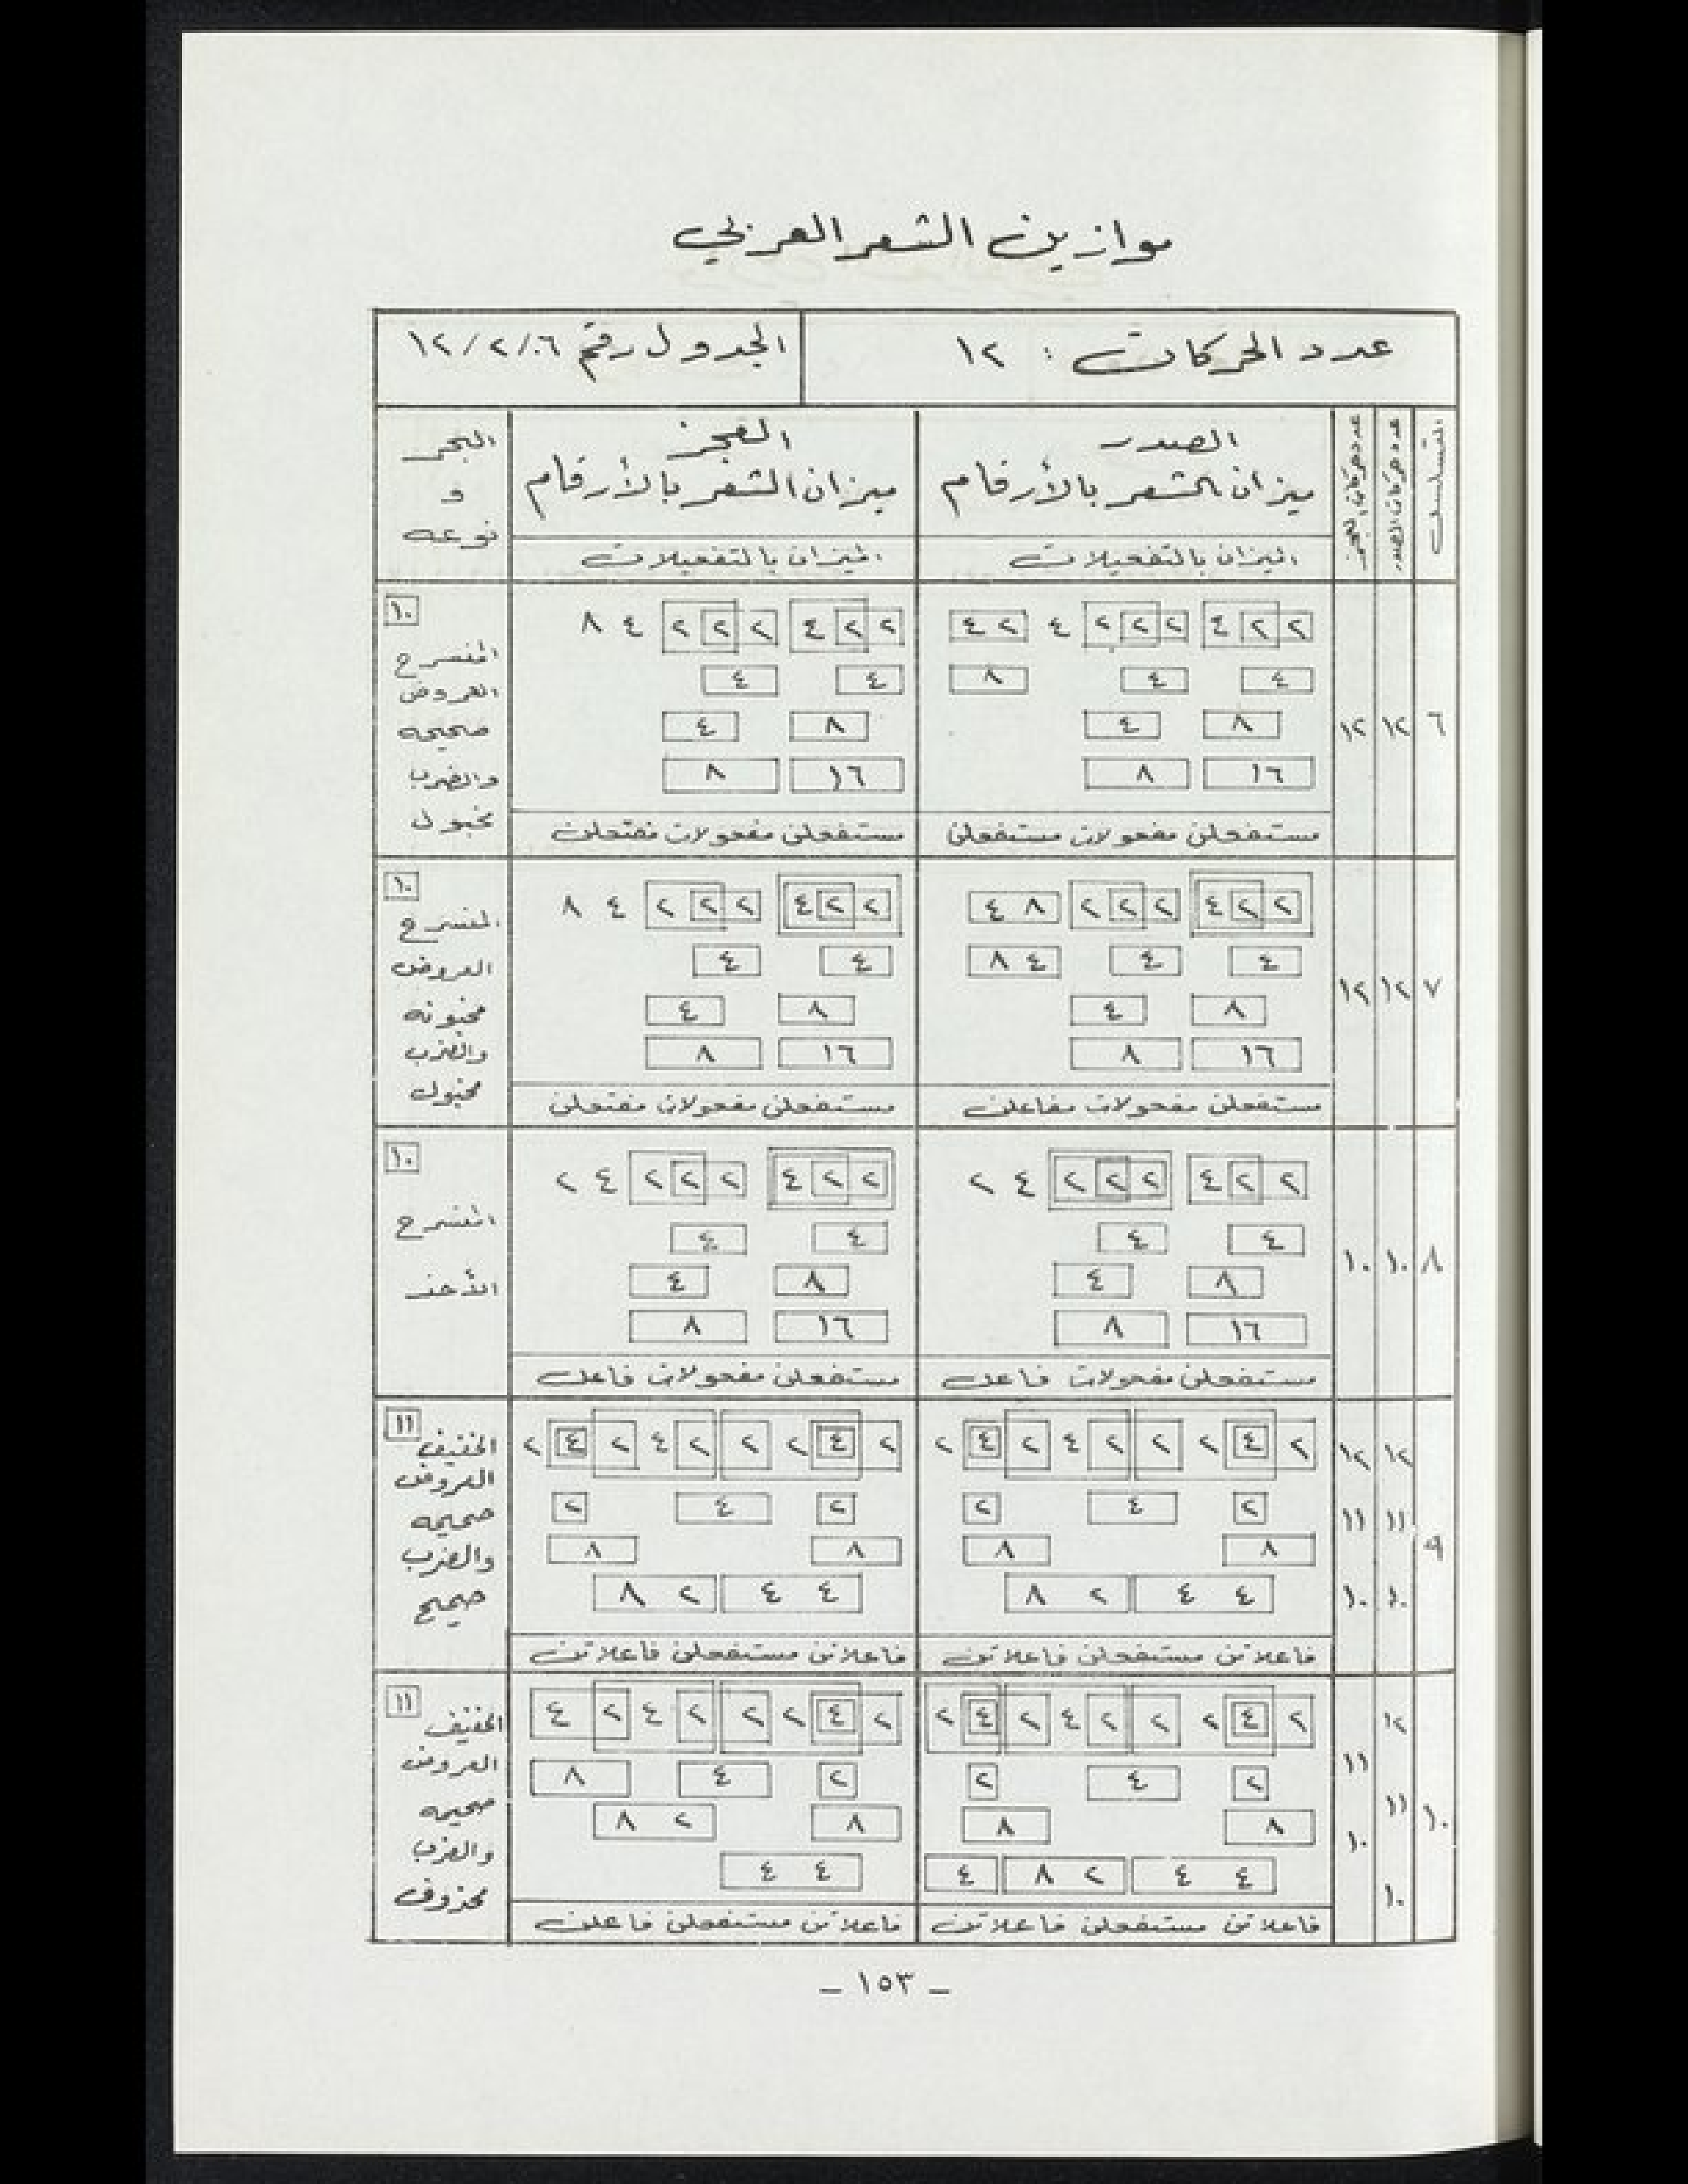 موازين الشعر العربي
عدد الحركات : ١٢
الجدول رقم ١٢/٢/٠٦
التسلسل
عدد حركات الصدر
عدد حركات العجز
الصدر
ميزان الشعر بالأرقام
الميزان بالتفعيلات
العجز
ميزان الشعر بالأرقام
الميزان بالتفعيلات
البحر
و
نوعه
٦
١٢
١٢
٢ ٢ ٤ ٢ ٢ ٢ ٤ ٢ ٤
٤ ٤ ٨
٨ ٤
١٦ ٨
مستفعلن مفعولات مستفعلن
٢ ٢ ٤ ٢ ٢ ٢ ٤ ٨
٤ ٤
٨ ٤
١٦ ٨
مستفعلن مفعولات مفتعلن
١٠
المنسرح
العروض
صحيحه
والضرب
مخبول
٧
١٢
١٢
٢ ٢ ٤ ٢ ٢ ٢ ٨ ٤
٤ ٤ ٤ ٨
٨ ٤
١٦ ٨
مستفعلن مفعولات مفاعلن
٢ ٢ ٤ ٢ ٢ ٢ ٤ ٨
٤ ٤
٨ ٤
١٦ ٨
مستفعلن مفعولات مفتعلن
١٠
المنسرح
العروض
مخبونه
والضرب
مخبول
٨
١٠
١٠
٢ ٢ ٤ ٢ ٢ ٢ ٤ ٢
٤ ٤
٨ ٤
١٦ ٨
مستفعلن مفعولات فاعل
٢ ٢ ٤ ٢ ٢ ٢ ٤ ٢
٤ ٤
٨ ٤
١٦ ٨
مستفعلن مفعولات فاعل
١٠
المنسرح
الأحذ
٩
١٢ ١٢
١١ ١١
١٠ ١٠
٢ ٤ ٢ ٢ ٢ ٤ ٢ ٤ ٢
٢ ٤ ٢
٨ ٨
٤ ٤ ٢ ٨
فاعلاتن مستفعلن فاعلاتن
٢ ٤ ٢ ٢ ٢ ٤ ٢ ٤ ٢
٢ ٤ ٢
٨ ٨
٤ ٤ ٢ ٨
فاعلاتن مستفعلن فاعلاتن
١١
الخفيف
العروض
صحيحه
والضرب
صحيح
١٠
١٢
١١
١٠
١١
١٠
٢ ٤ ٢ ٢ ٢ ٤ ٢ ٤ ٢
٢ ٤ ٢
٨ ٨
٤ ٤ ٢ ٨ ٤
فاعلاتن مستفعلن فاعلاتن
٢ ٤ ٢ ٢ ٢ ٤ ٢ ٤
٢ ٤ ٨
٨ ٢ ٨
٤ ٤
فاعلاتن مستفعلن فاعلن
١١
الخفيف
العروض
صحيحه
والضرب
محذوف
– ١٥٣ –